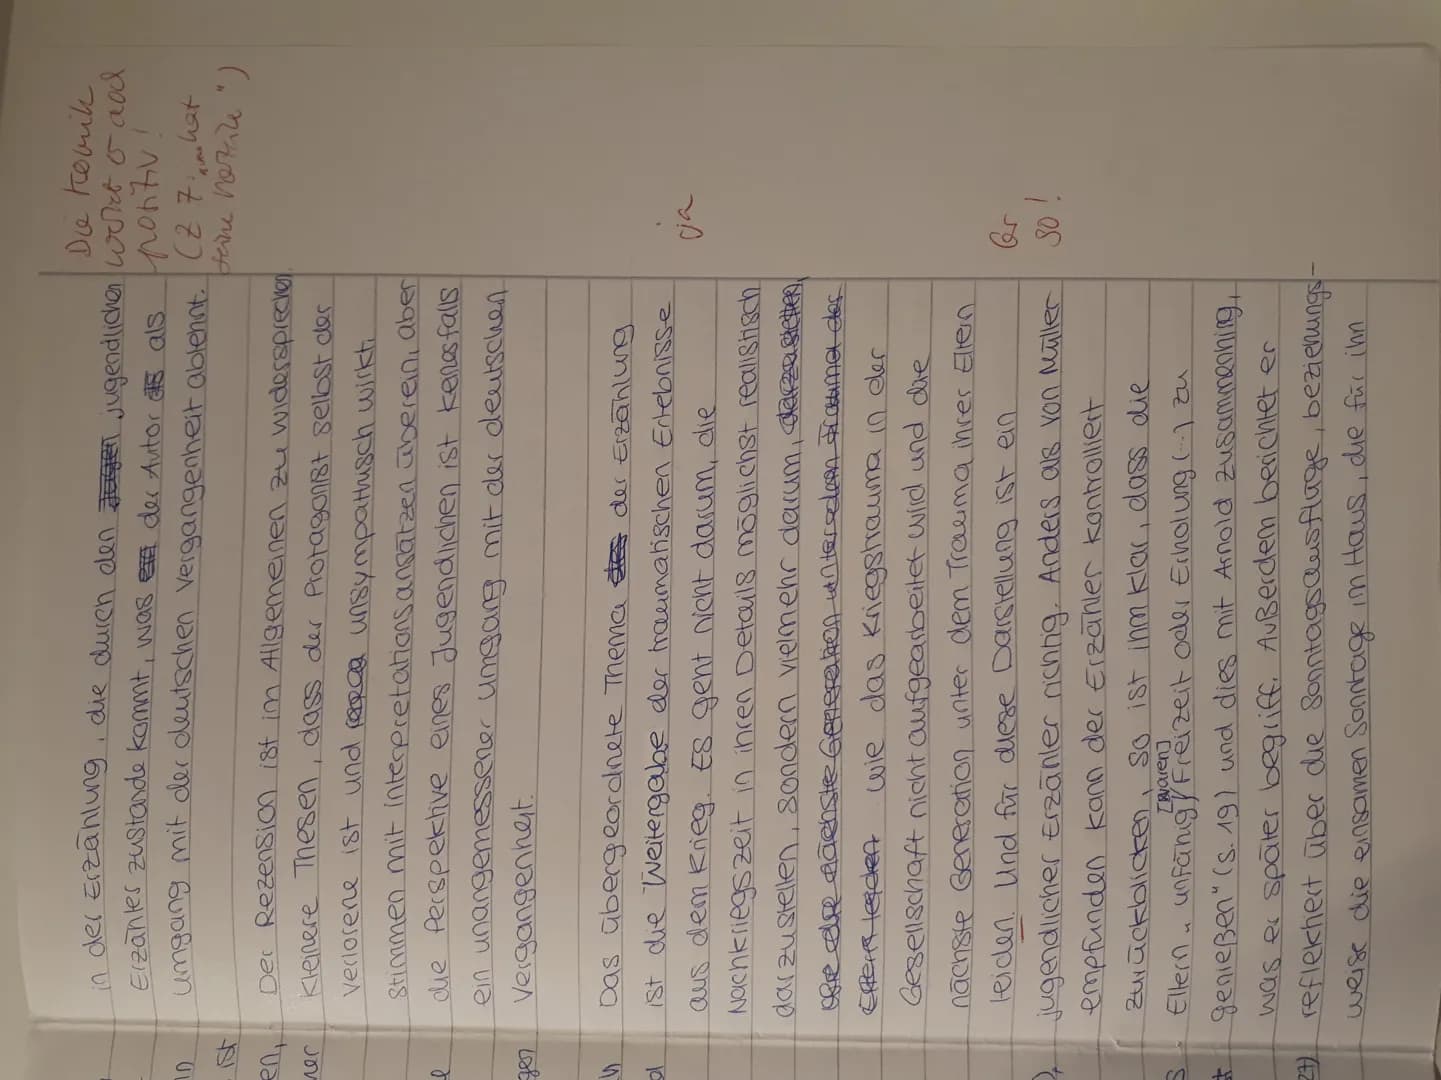 in der Erzählung, die durch den jugendlichen
Erzähler zustande kommt, was der Autor als
Umgang mit der deutschen Vergangenheit ablehnt.
Der Rezension ist im Allgemeinen zu widersprechen.
Kleinere Thesen, dass der Protagonist selbst der
verlorene ist und unsympathisch wirkt,
stimmen mit Interpretationsansätzen überein, aber
die Perspektive eines Jugendlichen ist keinesfalls
ein unangemessener Umgang mit der deutschen
Vergangenheit.
Das übergeordnete Thema der Erzählung
ist die Weitergabe der traumatischen Erlebnisse
aus dem Krieg. Es geht nicht darum, die
Nachkriegszeit in ihren Details möglichst realistisch
darzustellen, sondern vielmehr darum, darzustellen,
wie das Kriegstrauma in der
Gesellschaft nicht aufgearbeitet wird und die
nächste Generation unter dem Trauma ihrer Eltern
leiden. Und für diese Darstellung ist ein
jugendlicher Erzähler richtig. Anders als von Müller
empfunden kann der Erzähler kontrolliert
zurückblicken, so ist ihm klar, dass die
Eltern „unfähig [waren], Freizeit oder Erholung (...) zu
genießen" (S. 19) und dies mit Arnold zusammenhing,
was er später begriff. Außerdem berichtet er
reflektiert über die Sonntagsausflüge, beziehungs-
weise die einsamen Sonntage im Haus, die für ihn
Die Komik
positiv!
(Z 7: hat
seine
ja
so!
ist
en,
ner
e
gen